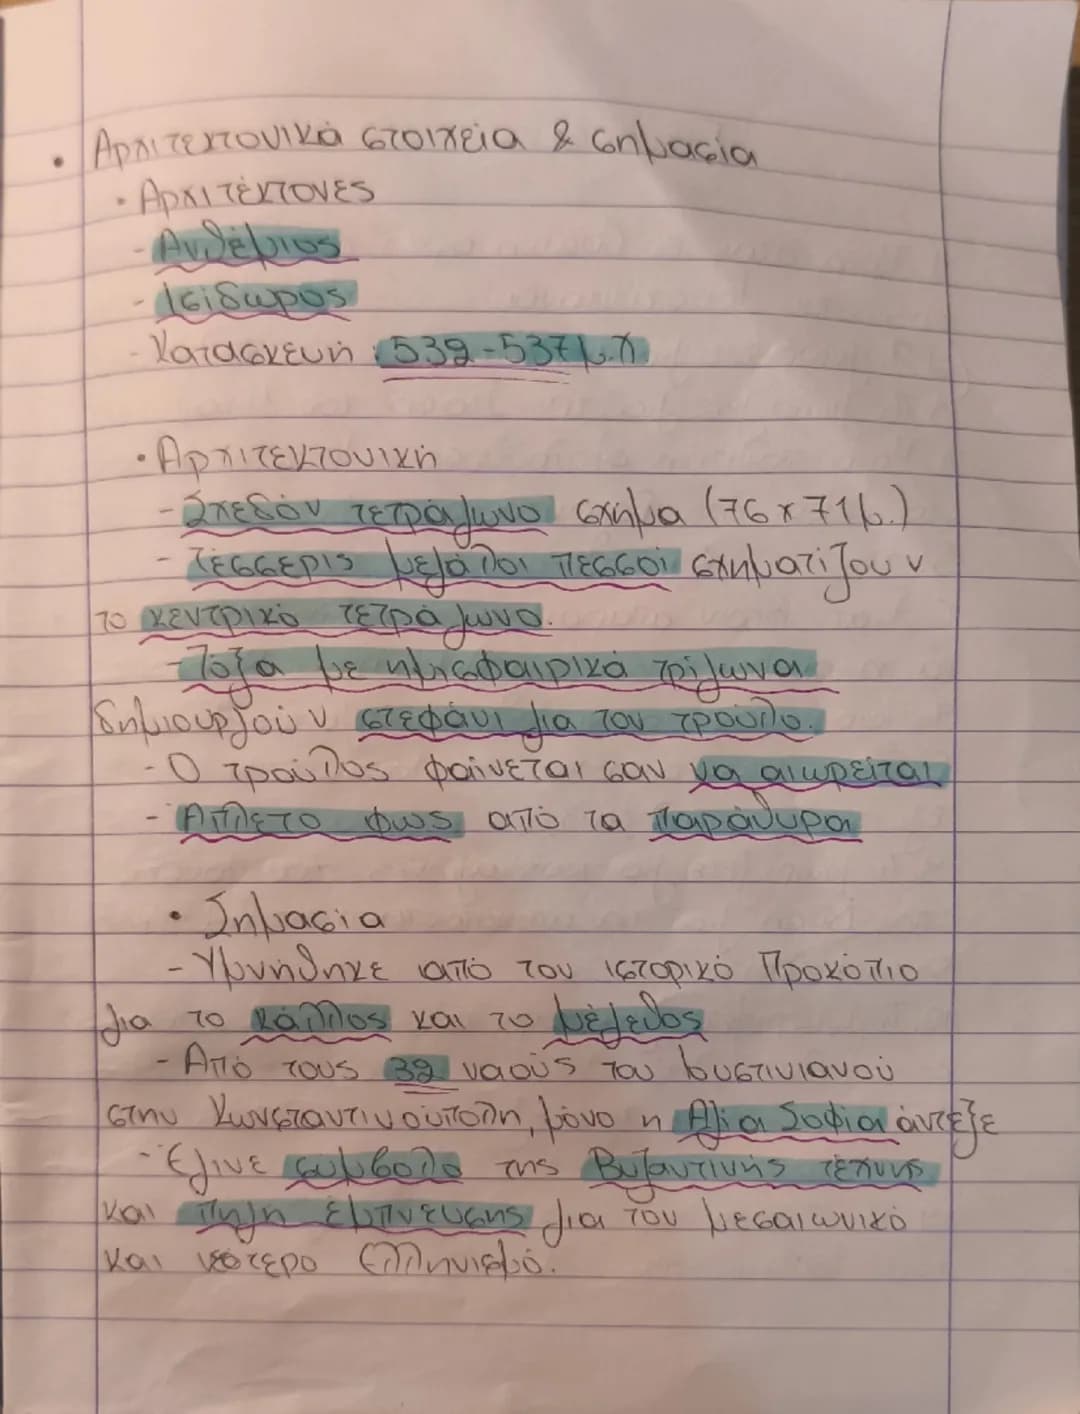 • Αρχιτεκτονικά στοιχεία & σημασία
• Αρχιτέκτονες
- Ανθέμιος
- Ισίδωρος
- Κατασκευή: 532-537 μ.Χ
• Αρχιτεκτονική
- Σχεδόν τετράγωνο σχήμα (76 x 71μ.)
- Τέσσερις μεγάλοι πεσσοί σχηματίζουν
το κεντρικό τετράγωνο.
- Τόξα με ημισφαιρικά τρίγωνα
δημιουργούν στεφάνι για τον τρούλο.
- Ο τρούλος φαίνεται σαν να αιωρείται
- Άπλετο φως από τα παράθυρα
• Σημασία
- Υμνήθηκε από τον ιστορικό Προκόπιο
για το κάλλος και το μέγεθος
- Από τους 32 ναούς του Ιουστινιανού
στην Κωνσταντινούπολη, μόνο η Αγία Σοφία άντεξε
- Έγινε σύμβολο της Βυζαντινής τέχνης
και πηγή έμπνευσης για τον μεσαιωνικό
και νεότερο Ελληνισμό.